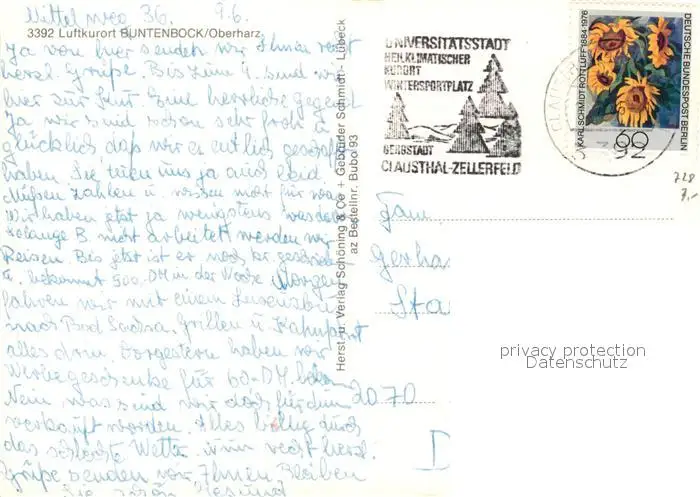 Mittelweg 36. 9.6.
3392 Luftkurort BUNTENBOCK/Oberharz
Ja von hier senden wir Ihnen recht
herzl. Grüße. Bis zum 4. sind wir
hier zur Kur. Eine herrliche Gegend
Ja wir sind schon sehr froh
glücklich daß wir es entlich geschafft
haben. Sie tuen uns ja auch leid
Müßen zahlen u. wissen nicht für was
Wir haben jetzt ja wenigstens
solange B. nicht arbeitet werden wir
Reisen. Bis jetzt ist er noch
u. bekommt 500.-DM in der Woche Morgen
fahren wir mit einem
nach Bad Sachsa. Grillen u. Kahnfahrt
alles drin. Vorgestern haben wir
Werbegeschenke für 60.-DM
Nein was sind wir doch für dumm
verkauft worden. Alles
das schlechte Wetter. Nun recht herzl.
Grüße senden wir Ihnen Bleiben
Sie schön Gesund
Herst. u. Verlag Schöning & Co + Gebrüder Schmidt - Lübeck
az Bestellnr. Bubo 93
UNIVERSITÄTSSTADT
HEILKLIMATISCHER
KURORT
WINTERSPORTPLATZ
BERGSTADT
CLAUSTHAL-ZELLERFELD
KARL SCHMIDT-ROTTLUFF 1884-1976
DEUTSCHE BUNDESPOST BERLIN
60
CLAUS
728
7,-
Fam.
Gerha
Sta
2070
D
privacy protection
Datenschutz